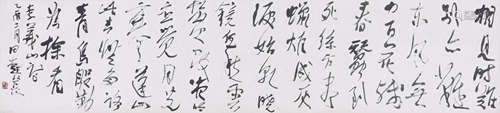 相見時難
別亦難
東風無
力百花殘
春蠶到
死絲方盡
蠟炬成灰
淚始乾曉
鏡但愁雲
鬢改夜吟
應覺月光
寒蓬山
此去無多路
青鳥殷勤
為探看
李義山詩
月田